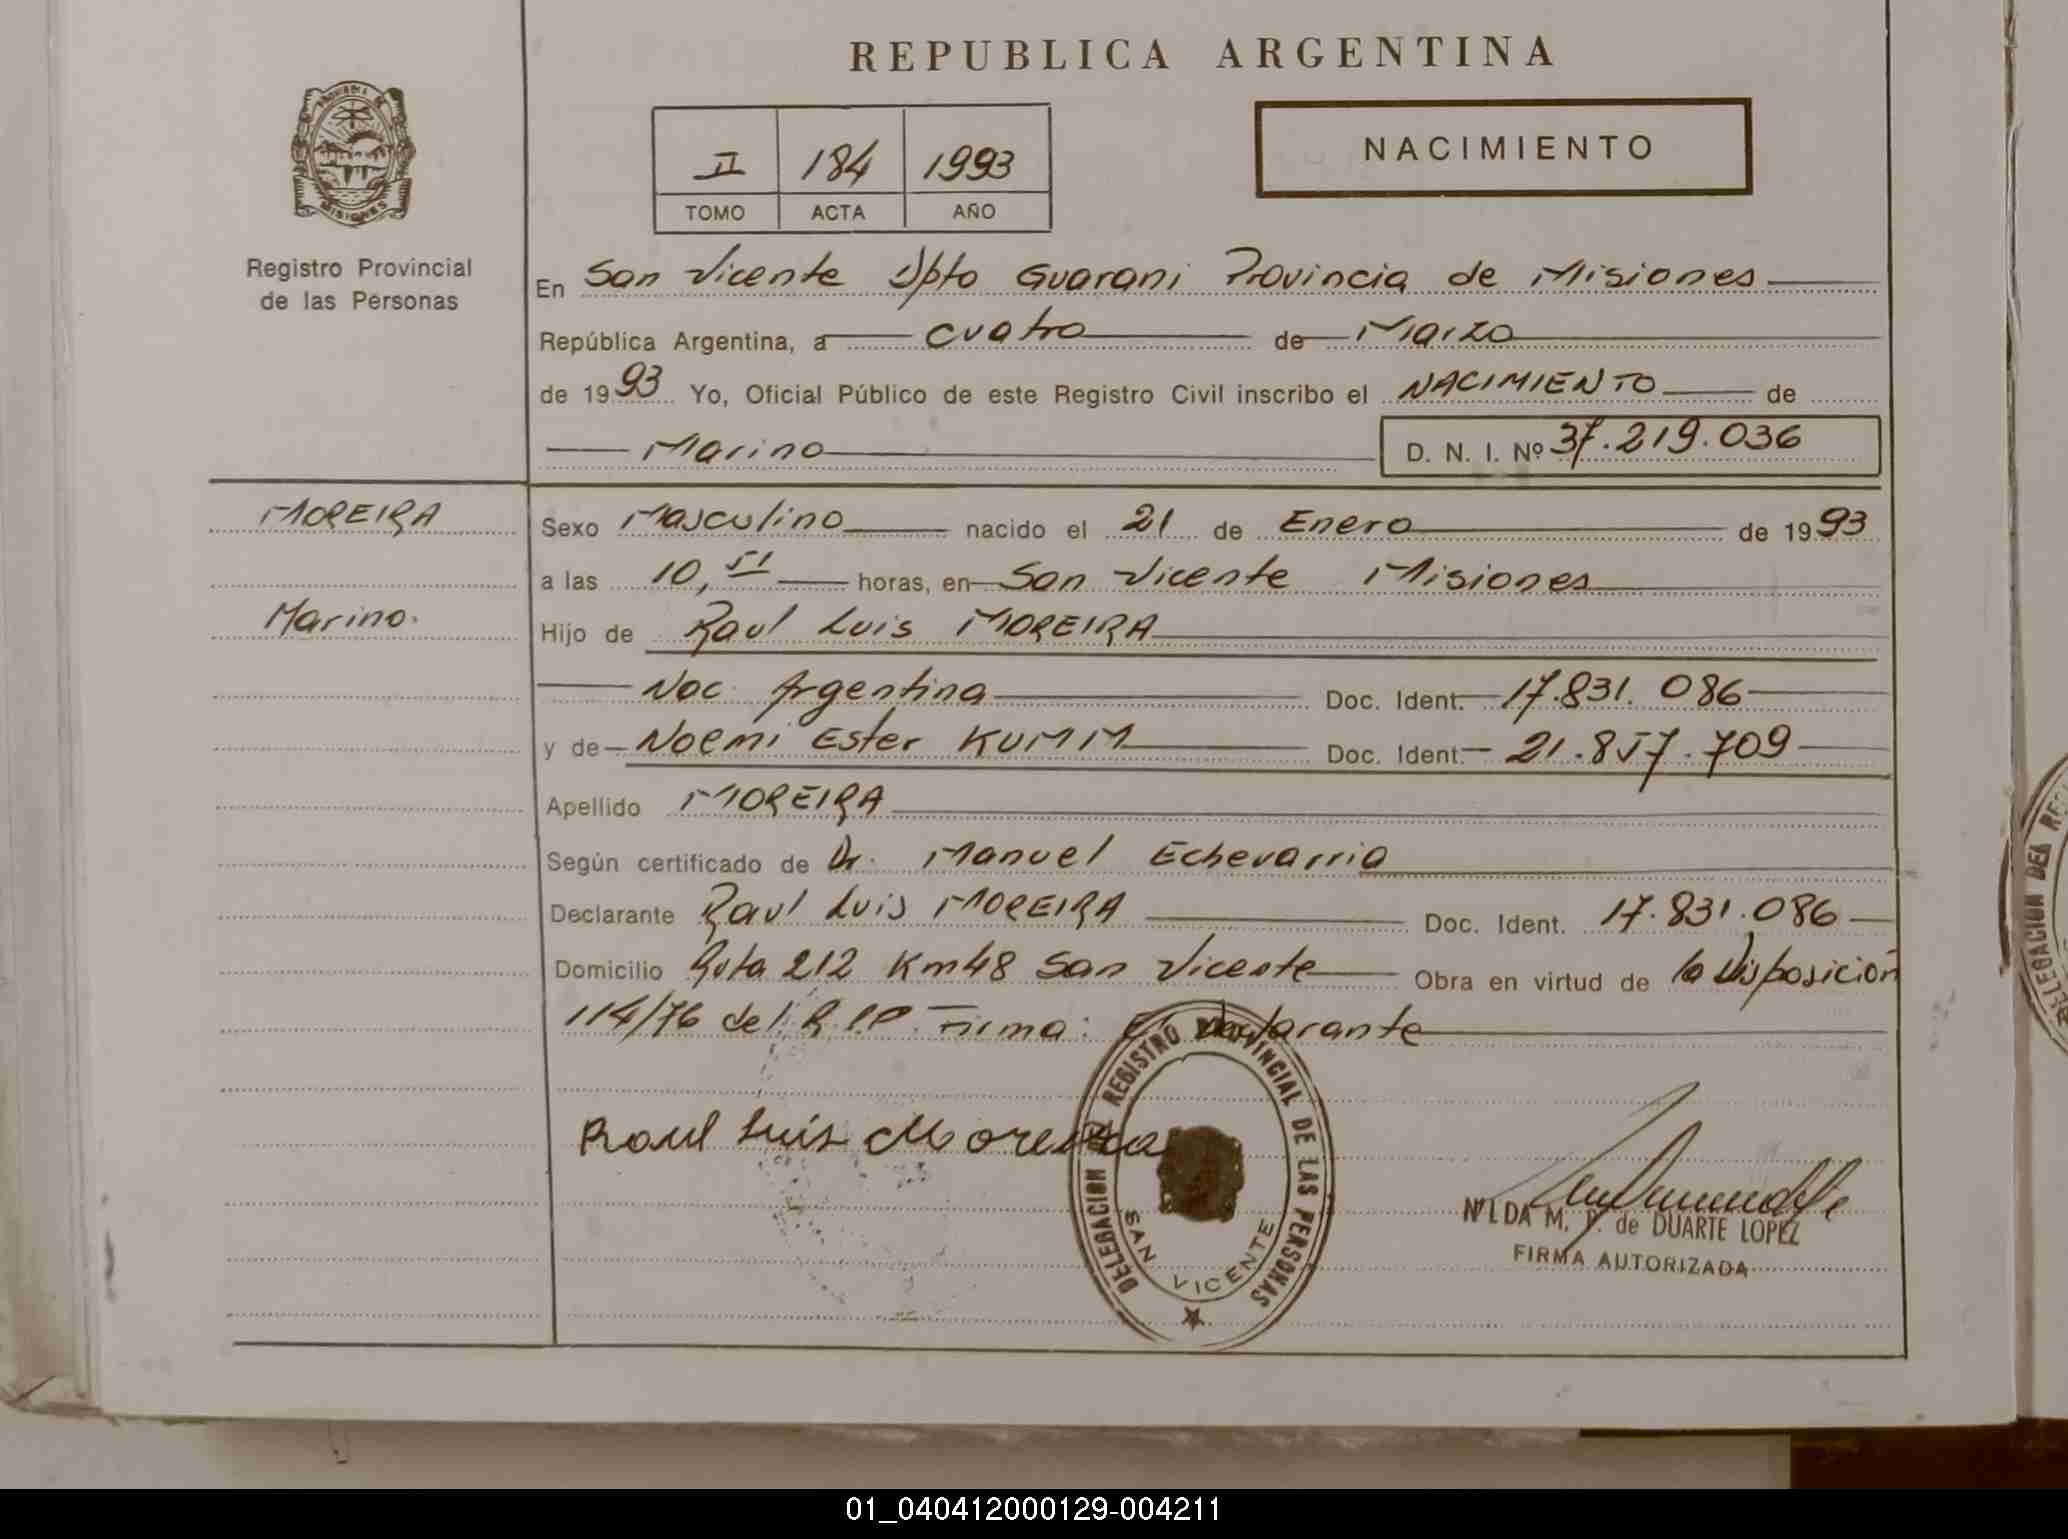 REPUBLICA ARGENTINA
PROVINCIA DE
MISIONES
Registro Provincial
de las Personas
II 184 1993
TOMO ACTA AÑO
NACIMIENTO
En San Vicente Dpto Guarani Provincia de Misiones
República Argentina, a cuatro de Marzo
de 1993 Yo, Oficial Público de este Registro Civil inscribo el NACIMIENTO de
Marino D. N. I. Nº 37.219.036
MOREIRA
Marino.
Sexo Masculino nacido el 21 de Enero de 1993
a las 10,51 horas, en San Vicente Misiones
Hijo de Raul Luis MOREIRA
Nac. Argentina Doc. Ident. 17.831.086
y de Noemi Ester KUMM Doc. Ident. 21.857.709
Apellido MOREIRA
Según certificado de Dr. Manuel Echevarria
Declarante Raul Luis MOREIRA Doc. Ident. 17.831.086
Domicilio Ruta 212 Km48 San Vicente Obra en virtud de la Disposición
114/76 del R.P.P. Firma: El Declarante
Raul Luis Moreira
DELEGACION DEL REGISTRO PROVINCIAL DE LAS PERSONAS
SAN VICENTE
NILDA M. P. de DUARTE LOPEZ
FIRMA AUTORIZADA
DELEGACION DEL
01_040412000129-004211